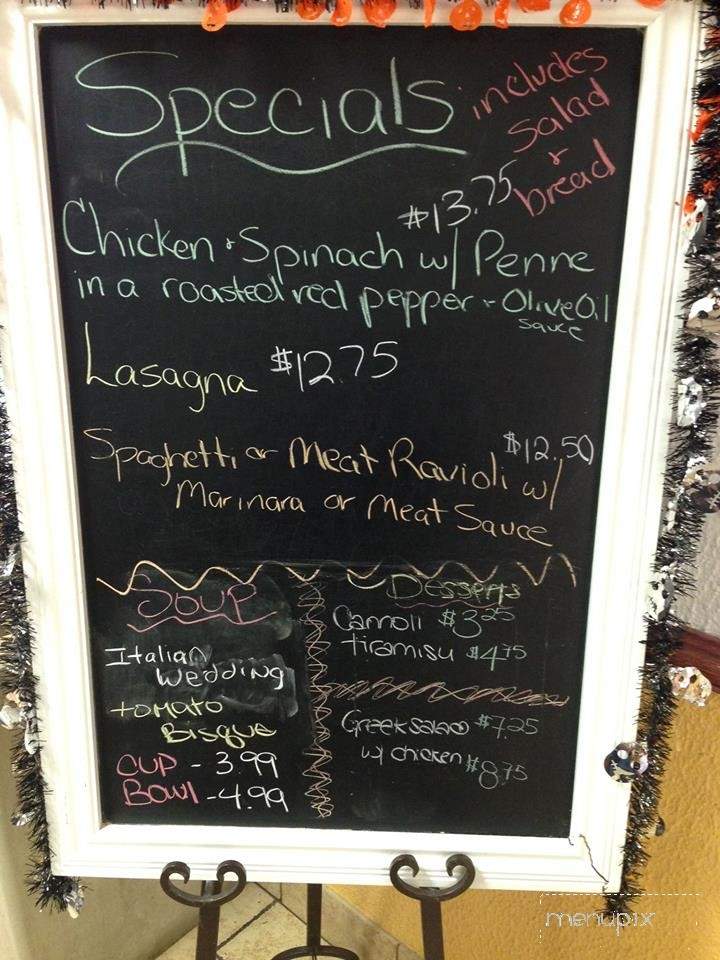 Specials
includes
salad
+
bread
$13.75
Chicken + Spinach w/ Penne
in a roasted red pepper + Olive Oil
sauce
Lasagna $12.75
$12.50
Spaghetti or Meat Ravioli w/
Marinara or Meat Sauce
Soup
Italian
Wedding
tomato
Bisque
CUP - 3.99
BOWl - 4.99
Desserts
Cannoli $3.25
tiramisu $4.75
Greek salad $7.25
w/ chicken $8.75
menupix